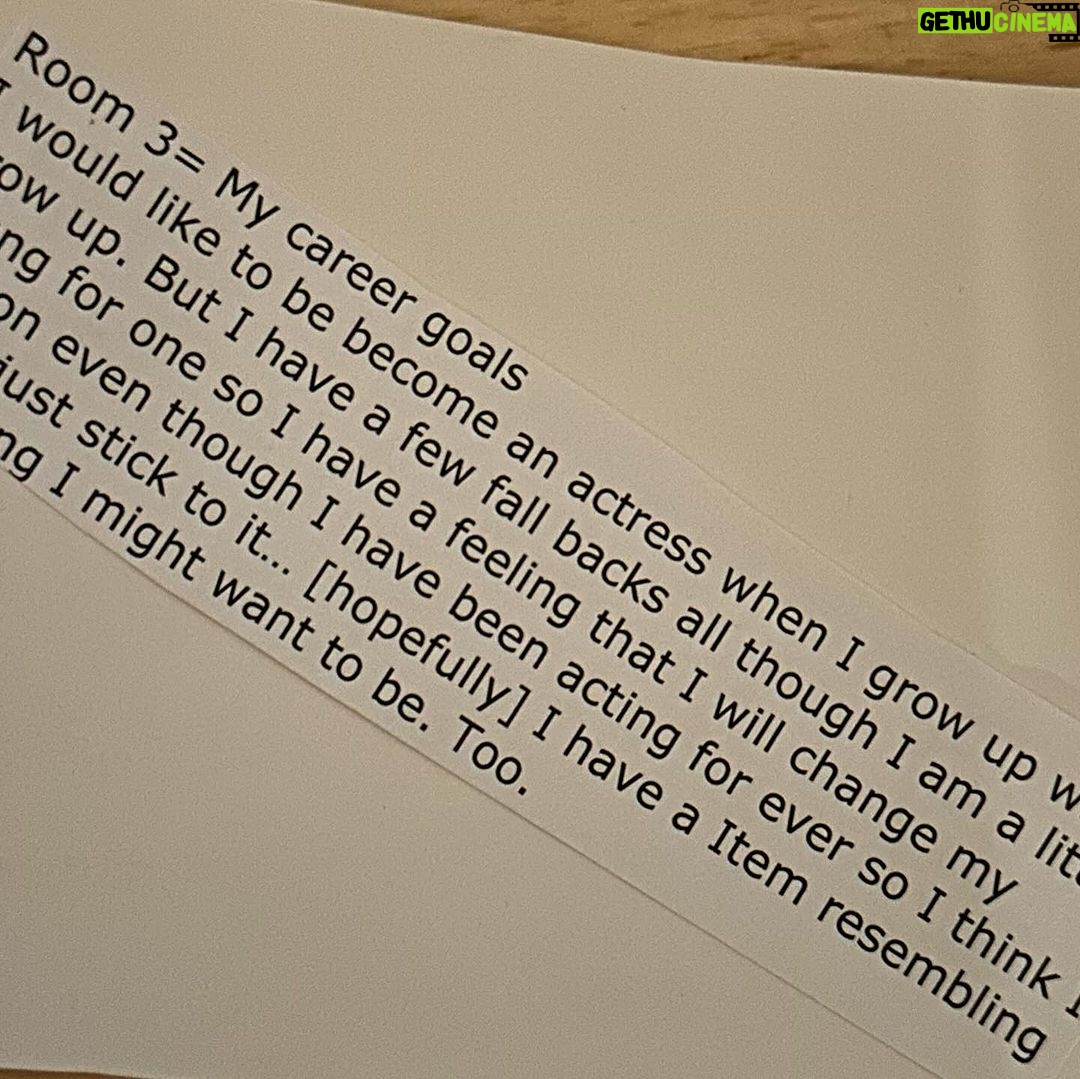 GETHUCINEMA
Room 3= My career goals
I would like to be become an actress when I grow up w
ow up. But I have a few fall backs all though I am a litt
ng for one so I have a feeling that I will change my
on even though I have been acting for ever so I think I
just stick to it... [hopefully] I have a Item resembling
ng I might want to be. Too.